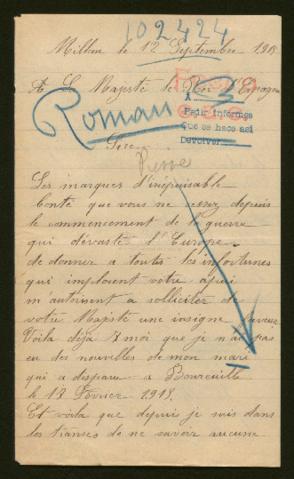 102424
Milhou le 12 Septembre 1915
A S. Majesté le Roi d'Espagne
Roman
Pedir informes
Que se hace así
Devolver
Sire
Pierre
Les marques d'inépuisable
bonté que vous ne cessez depuis
le commencement de la guerre
qui dévaste l'Europe
de donner a toutes les infortunes
qui implorent votre apui
m'autorisent a solliciter de
votre Majesté une insigne faveur
Voila déja 7 moi que je n'ai pas
eu des nouvelles de mon mari
qui a disparu a Boureuille
le 18 Février 1915.
Et voila que depuis je suis dans
les transes de ne savoir aucune